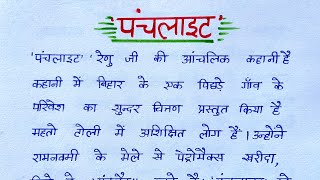 'पंचलाइट'
'पंचलाइट' 'रेणु जी की आंचलिक कहानी है
कहानी में बिहार के एक पिछड़े गाँव के
परिवेश का सुन्दर चित्रण प्रस्तुत किया है
महतो टोली में अशिक्षित लोग है"। उन्होने
रामनवमी के मेले से पेट्रोमैक्स खरीदा,